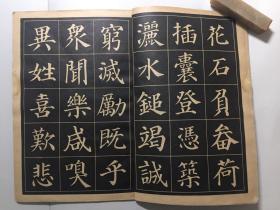 花石負畚荷
插囊登憑築
灑水鎚竭誠
窮滅勵既乎
衆聞樂咸嗅
異姓喜歎悲